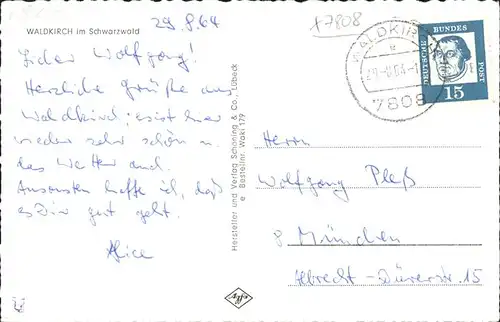 29.8.64
+7808
WALDKIRCH im Schwarzwald
Lieber Wolfgang!
Herzliche Grüße aus
Waldkirch; es ist hier
wieder sehr schön u.
das Wetter
Ansonsten hoffe ich, daß
es Dir gut geht.
Alice
Hersteller und Verlag Schöning & Co., Lübeck
Bestellnr. Waki 179
WALDKIRCH
7808
DEUTSCHE BUNDES POST
15
Herrn
Wolfgang Pleß
8 München
Albrecht-Dürerstr. 15